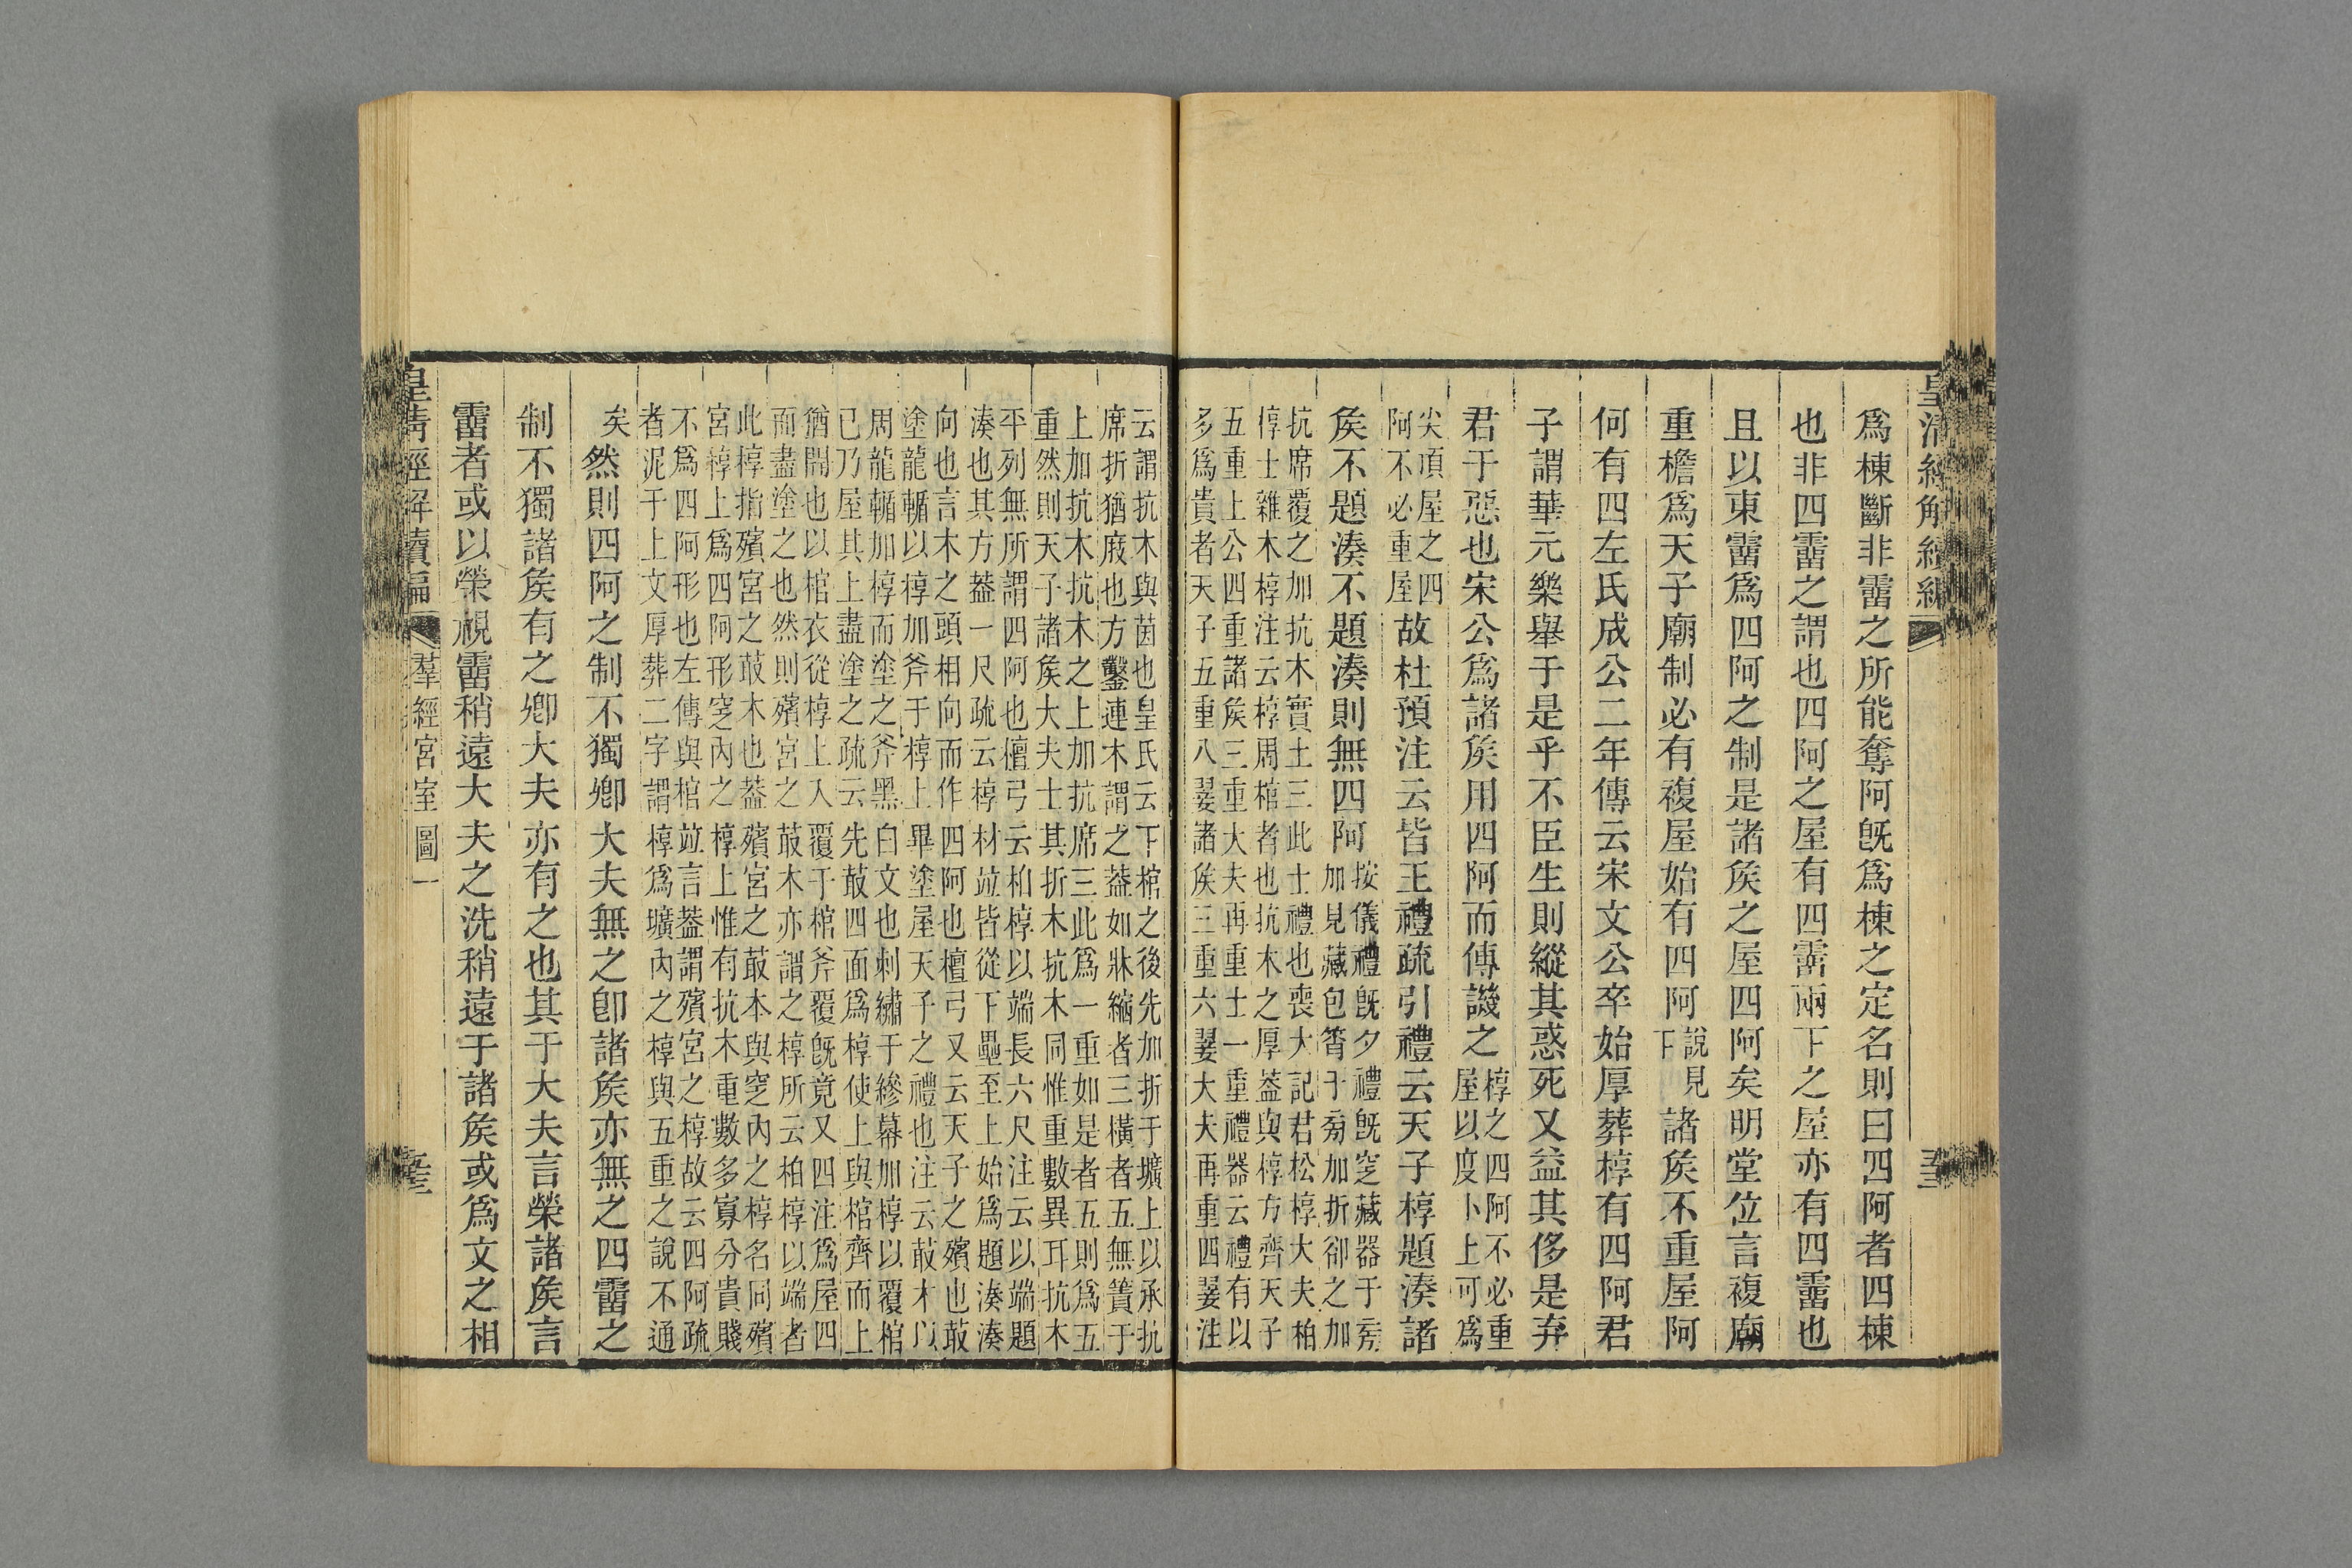 爲棟斷非霤之所能奪阿旣爲棟之定名則曰四阿者四棟
也非四霤之謂也四阿之屋有四霤兩下之屋亦有四霤也
且以東霤爲四阿之制是諸矦之屋四阿矣明堂位言複廟
重檐爲天子廟制必有複屋始有四阿說見下諸矦不重屋阿
何有四左氏成公二年傳云宋文公卒始厚葬椁有四阿君
子謂華元樂舉于是乎不臣生則縱其惑死又益其侈是弃
君于惡也宋公爲諸矦用四阿而傳譏之椁之四阿不必重屋以度卜上可爲
尖頂屋之四阿不必重屋故杜預注云皆王禮疏引禮云天子椁題湊諸
矦不題湊不題湊則無四阿按儀禮旣夕禮旣窆藏器于旁加見藏包筲于旁加折卻之加
抗席覆之加抗木實土三此士禮也喪大記君松椁大夫柏
椁士雜木椁注云椁周棺者也抗木之厚葢與椁方齊天子
五重上公四重諸矦三重大夫再重士一重禮器云禮有以
多爲貴者天子五重八翣諸矦三重六翣大夫再重四翣注
云謂抗木與茵也皇氏云下棺之後先加折于壙上以承抗
席折猶庪也方鑿連木謂之葢如牀縮者三橫者五無簀于
上加抗木抗木之上加抗席三此爲一重如是者五則爲五
重然則天子諸矦大夫士其折木抗木同惟重數異耳抗木
平列無所謂四阿也檀弓云柏椁以端長六尺注云以端題
湊也其方葢一尺疏云椁材竝皆從下壘至上始爲題湊湊
向也言木之頭相向而作四阿也檀弓又云天子之殯也菆
塗龍輴以椁加斧于椁上畢塗屋天子之禮也注云菆木以
周龍輴加椁而塗之斧黑白文也刺繡于縿幕加椁以覆棺
已乃屋其上盡塗之疏云先菆四面爲椁使上與棺齊而上
猶開也以棺衣從椁上入覆于棺斧覆旣竟又四注爲屋四
而盡塗之也然則殯宮之菆木亦謂之椁所云柏椁以端者
此椁指殯宮之菆木也葢殯宮之菆本與窆內之椁名同殯
宮椁上爲四阿形窆內之椁上惟有抗木重數多寡分貴賤
不爲四阿形也左傳與棺竝言葢謂殯宮之椁故云四阿疏
者泥于上文厚葬二字謂椁爲壙內之椁與五重之說不通
矣然則四阿之制不獨卿大夫無之卽諸矦亦無之四霤之
制不獨諸矦有之卿大夫亦有之也其于大夫言榮諸矦言
霤者或以榮視霤稍遠大夫之洗稍遠于諸矦或爲文之相
皇清經解續編 羣經宮室圖一